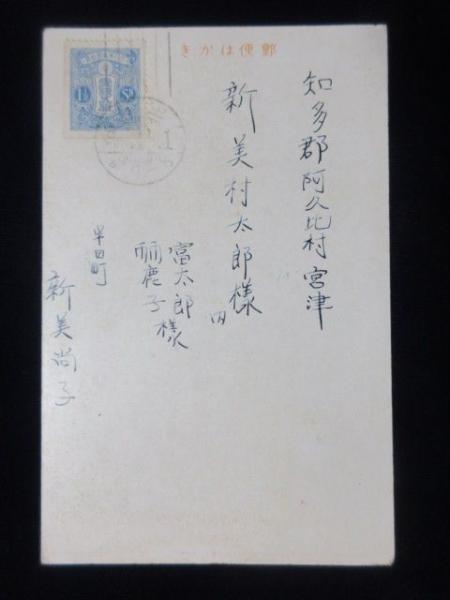 郵便はかき
知多郡阿久比村宮津
新美村太郎様
内
富太郎
麗子
様
半田町
新美尚子
1½ Sn